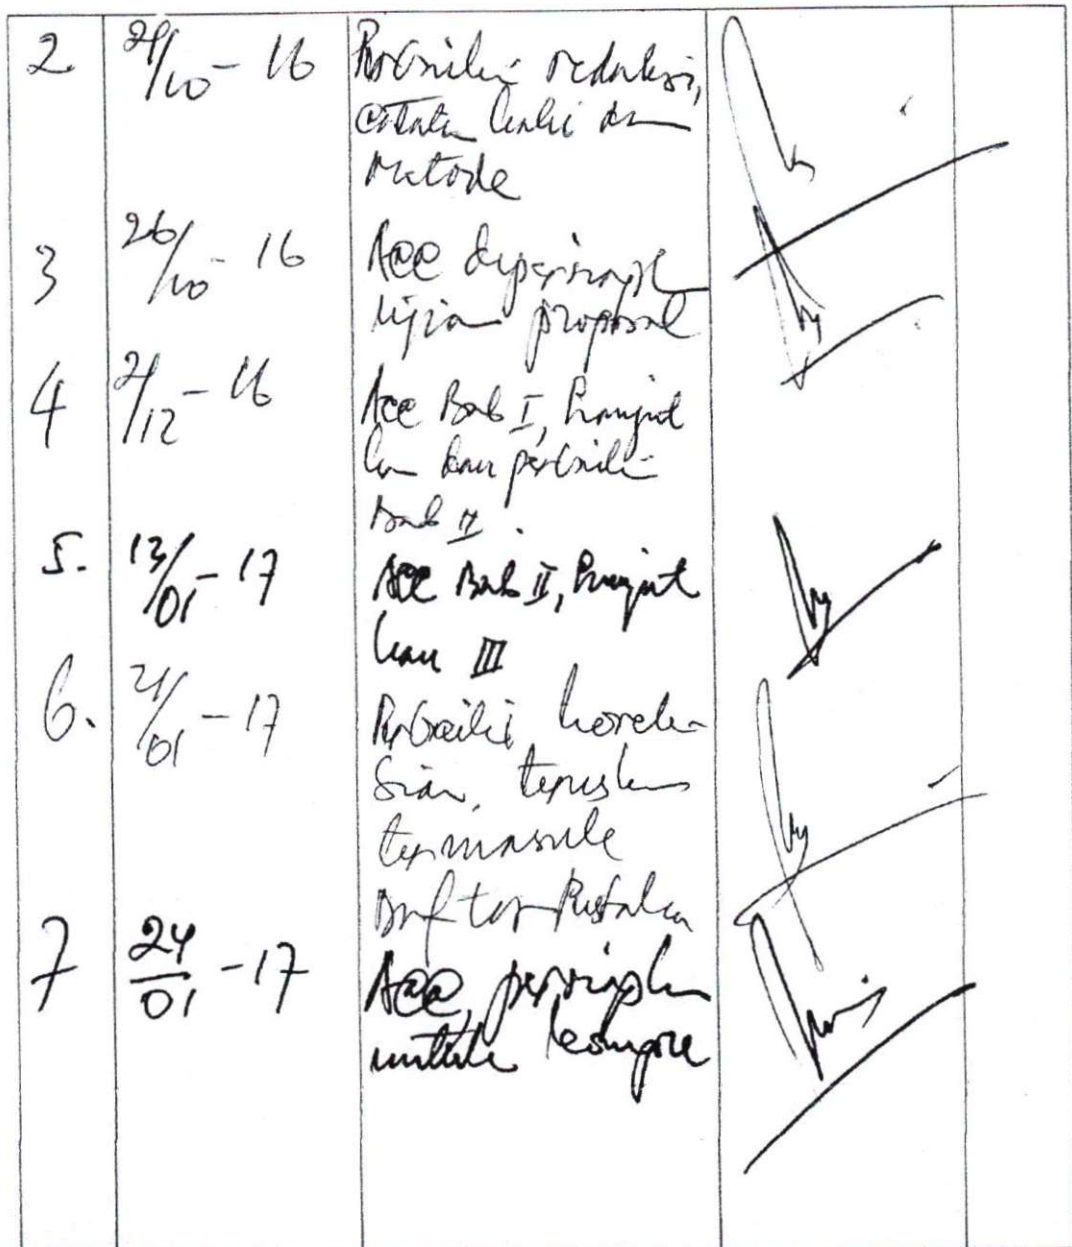 2 21/10 - 16 Perbaiki redaksi,
catatan kaki dan
metode
3 26/10 - 16 Acc dipersiapk
ujian proposal
4 21/12 - 16 Acc Bab I, lanjut
kan dan perbaiki
Bab II.
5. 13/01 - 17 Acc Bab II, lanjut
kan III
6. 21/01 - 17 Perbaiki
termasuk
Daftar Pustaka
7 24/01 - 17 Acc, persiapkan
untuk kompre